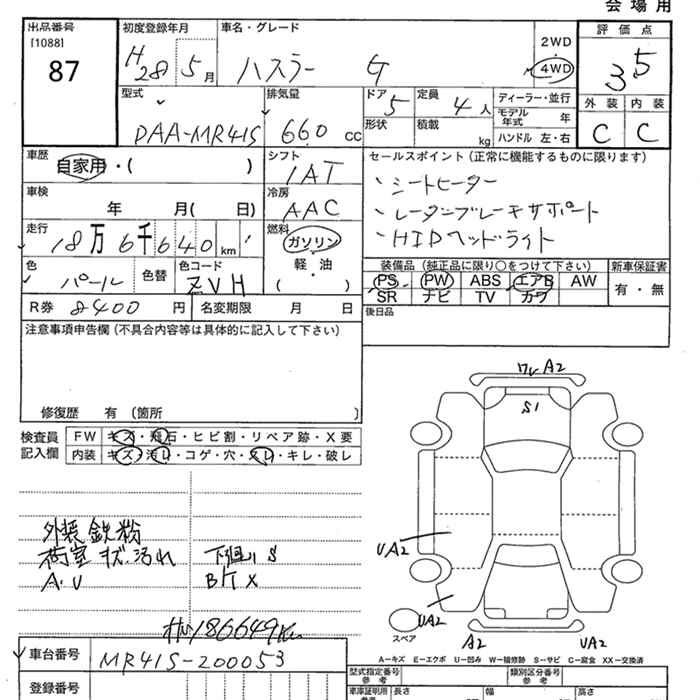 会場用
出品番号
[1088]
87
初度登録年月
H28 5月
車名・グレード
ハスラー G
2WD
4WD
評価点
3.5
外装 内装
C C
型式
DAA-MR41S
排気量
660 cc
ドア 5
定員 4人
形状
積載 kg
ディーラー・並行
モデル年式 年
ハンドル 左・右
車歴
自家用・( )
シフト
IAT
車検
年 月( 日)
冷房
AAC
走行
18万6千640km
燃料
ガソリン
軽・油
( )
色
パール
色替
色コード
ZVH
R券 8400円
名変期限 月 日
セールスポイント(正常に機能するものに限ります)
、シートヒーター
、レーダーブレーキサポート
、HIDヘッドライト
装備品(純正品に限り○をつけて下さい)
PS PW ABS エアB AW
SR ナビ TV カワ
新車保証書
有・無
後日品
注意事項申告欄(不具合内容等は具体的に記入して下さい)
修復歴 有(箇所 )
検査員記入欄
FW キズ・飛石・ヒビ割・リペア跡・X要
内装 キズ・汚レ・コゲ・穴・スレ・キレ・破レ
外装 鉄粉
荷室 キズ、汚れ
A.U
下廻り S
B/T X
186649km
車台番号
MR41S-200053
登録番号
ワレ A2
S1
UA2
UA2
A2
UA2
スペア
A-キズ E-エクボ U-凹み W-補修跡 S-サビ C-腐食 XX-交換済
型式指定番号
参考
類別区分番号
参考
車庫証明用
参考
長さ
幅
高さ